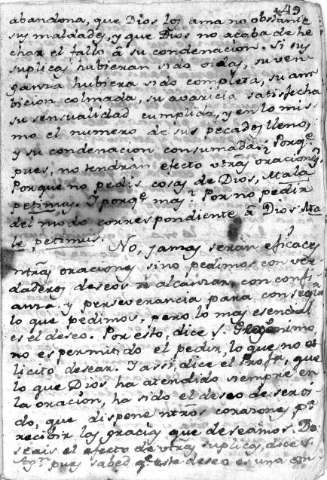 49
abandona, que Dios los ama no obstante
sus maldades, y que Dios no acaba de he
char el fallo à su condenacion. Si sus
suplicas hubieran sido oidas, su ven
ganza hubiera sido completa, su am
bicion colmada, su avaricia satisfecha
su sensualidad cumplida, y en lo mis
mo el numero de sus pecados lleno,
y su condenacion consumada. Porqe.
pues, no tendràn efecto vtras oraciones
Porque no pedis cosas de Dios, Mala
petimus. Y porqe mas? Por no pedir
del modo correspondiente à Dios Ma
le petimus.
No, jamas seràn eficaces
ntras oraciones, sino pedimos con ver
daderos deseos de alcanzar con confi
anza, y perseverancia para conseguir
lo que pedimos, pero lo mas esencial
es el deseo. Por esto, dice S. Geronimo
no es permitido el pedir, lo que no es
licito desear. Y assi, dice el Profta, que
lo que Dios ha atendido siempre en
la oracion, ha sido el deseo de ser oi
do, que dispone ntros corazones pa
recibir las gracias que deseamos. De
seais el efecto de vtras suplicas, dice S.
Agn. pues sabed qe este deseo es una con